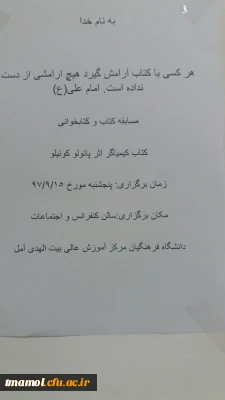 به نام خدا
هر کسی با کتاب آرامش گیرد هیچ ارامشی از دست
نداده است. امام علی(ع)
مسابقه کتاب و کتابخوانی
کتاب کیمیاگر اثر پائولو کوئیلو
زمان برگزاری: پنجشنبه مورخ ۹۷/۹/۱۵
مکان برگزاری:سالن کنفرانس و اجتماعات
دانشگاه فرهنگیان مرکز آموزش عالی بیت الهدی آمل
tmamol.cfu.ac.ir